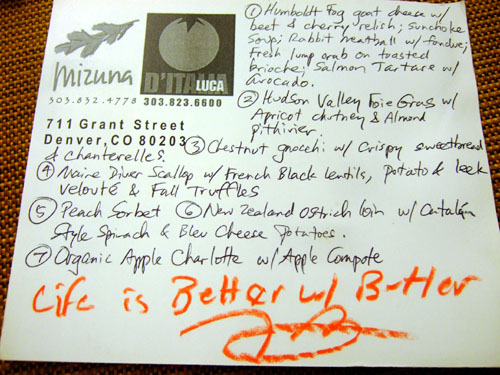 mizuna
303.832.4778
D'ITALIA
LUCA
303.823.6600
711 Grant Street
Denver, CO 80203
① Humboldt Fog goat cheese w/
beet & cherry relish; sunchoke
soup; Rabbit meatball w/ fondue;
fresh lump crab on toasted
brioche; Salmon Tartare w/
avocado.
② Hudson Valley Foie Gras w/
Apricot chutney & Almond
pithivier.
③ Chestnut gnocchi w/ Crispy sweetbread
& Chanterelles.
④ Maine Diver Scallop w/ French Black lentils, potato & leek
velouté & Fall Truffles
⑤ Peach Sorbet ⑥ New Zealand Ostrich loin w/ Catalán
Style Spinach & Bleu Cheese Potatoes.
⑦ Organic Apple Charlotte w/ Apple Compote
Life is Better w/ Butter